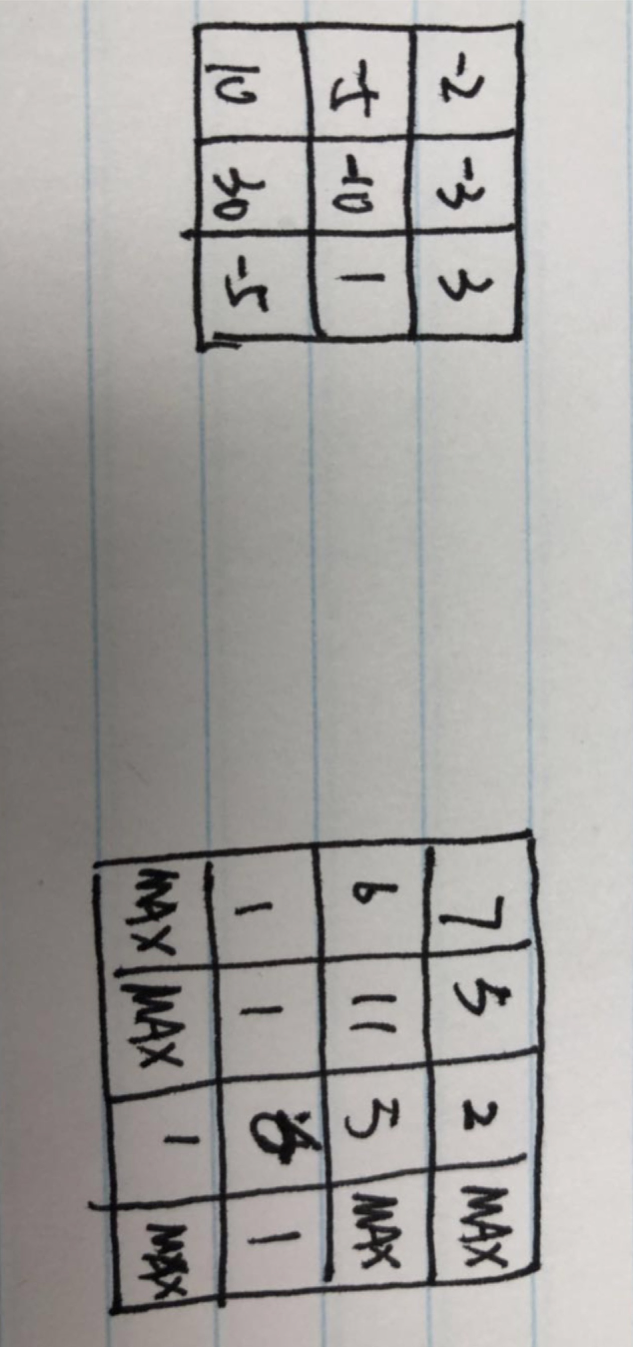 -2 -3 3
-5 -10 1
10 30 -5
7 5 2 MAX
6 11 5 MAX
1 1 1
MAX MAX 1 MAX